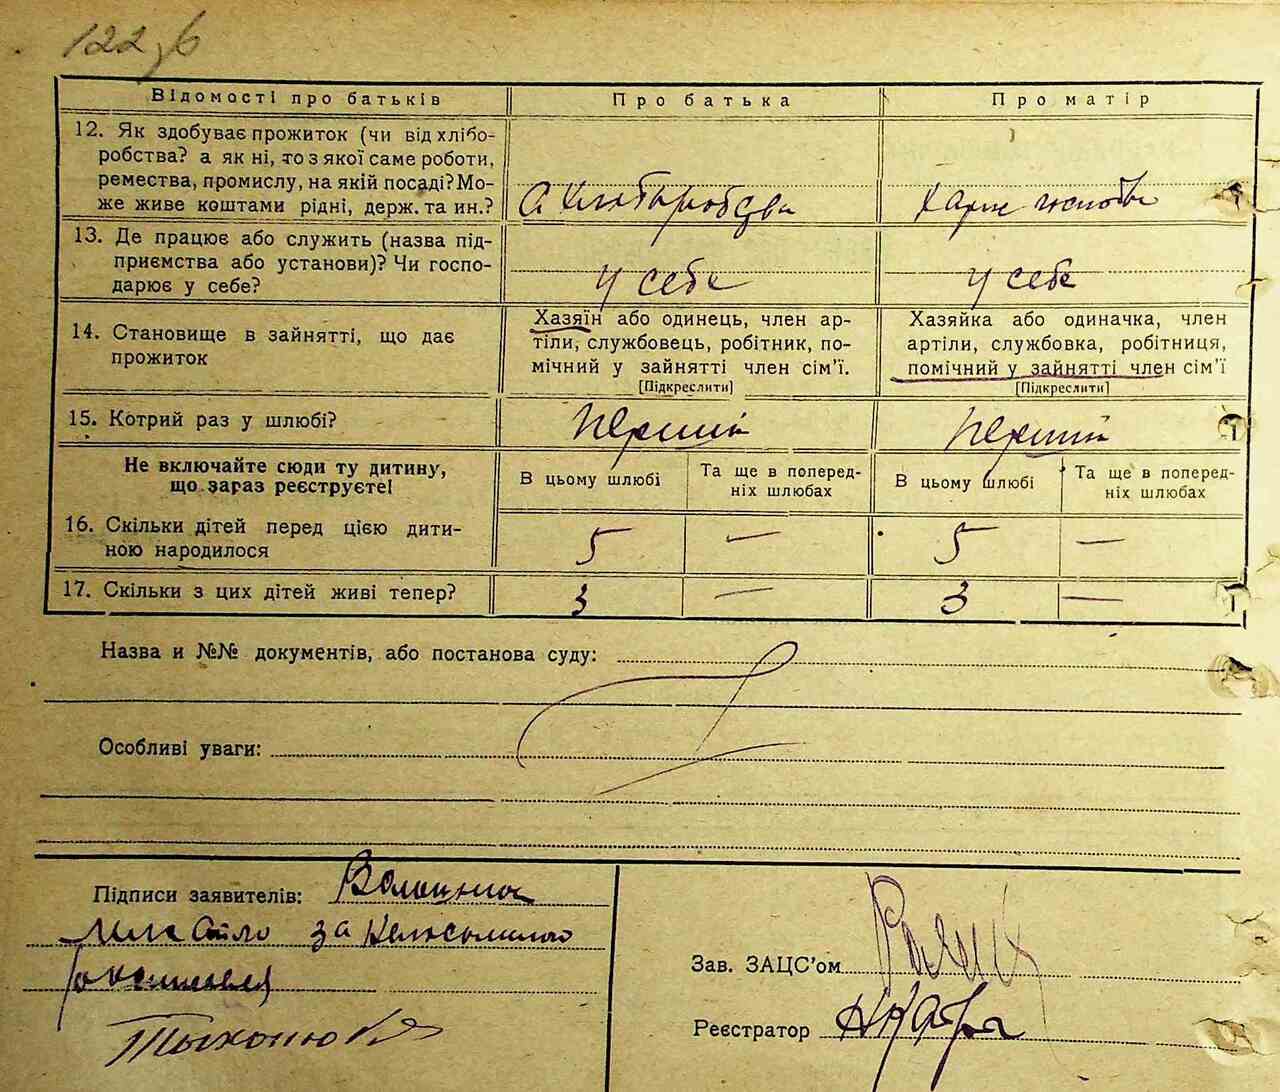 122
Відомості про батьків
Про батька
Про матір
12. Як здобуває прожиток (чи від хлібо-
робства? а як ні, то з якої саме роботи,
ремества, промислу, на якій посаді? Мо-
же живе коштами рідні, держ. та ин.?
13. Де працює або служить (назва під-
приємства або установи)? Чи госпо-
дарює у себе?
у себе
у себе
14. Становище в зайнятті, що дає
прожиток
Хазяїн або одинець, член ар-
тіли, службовець, робітник, по-
мічний у зайнятті член сім'ї.
[Підкреслити]
Хазяйка або одиначка, член
артіли, службовка, робітниця,
помічний у зайнятті член сім'ї
[Підкреслити]
15. Котрий раз у шлюбі?
перший
перший
Не включайте сюди ту дитину,
що зараз реєструєте!
В цьому шлюбі
Та ще в поперед-
ніх шлюбах
В цьому шлюбі
Та ще в поперед-
ніх шлюбах
16. Скільки дітей перед цією дити-
ною народилося
5 —
5 —
17. Скільки з цих дітей живі тепер?
3 —
3 —
Назва и №№ документів, або постанова суду:
Особливі уваги:
Підписи заявителів:
за
Зав. ЗАЦС'ом
Реєстратор